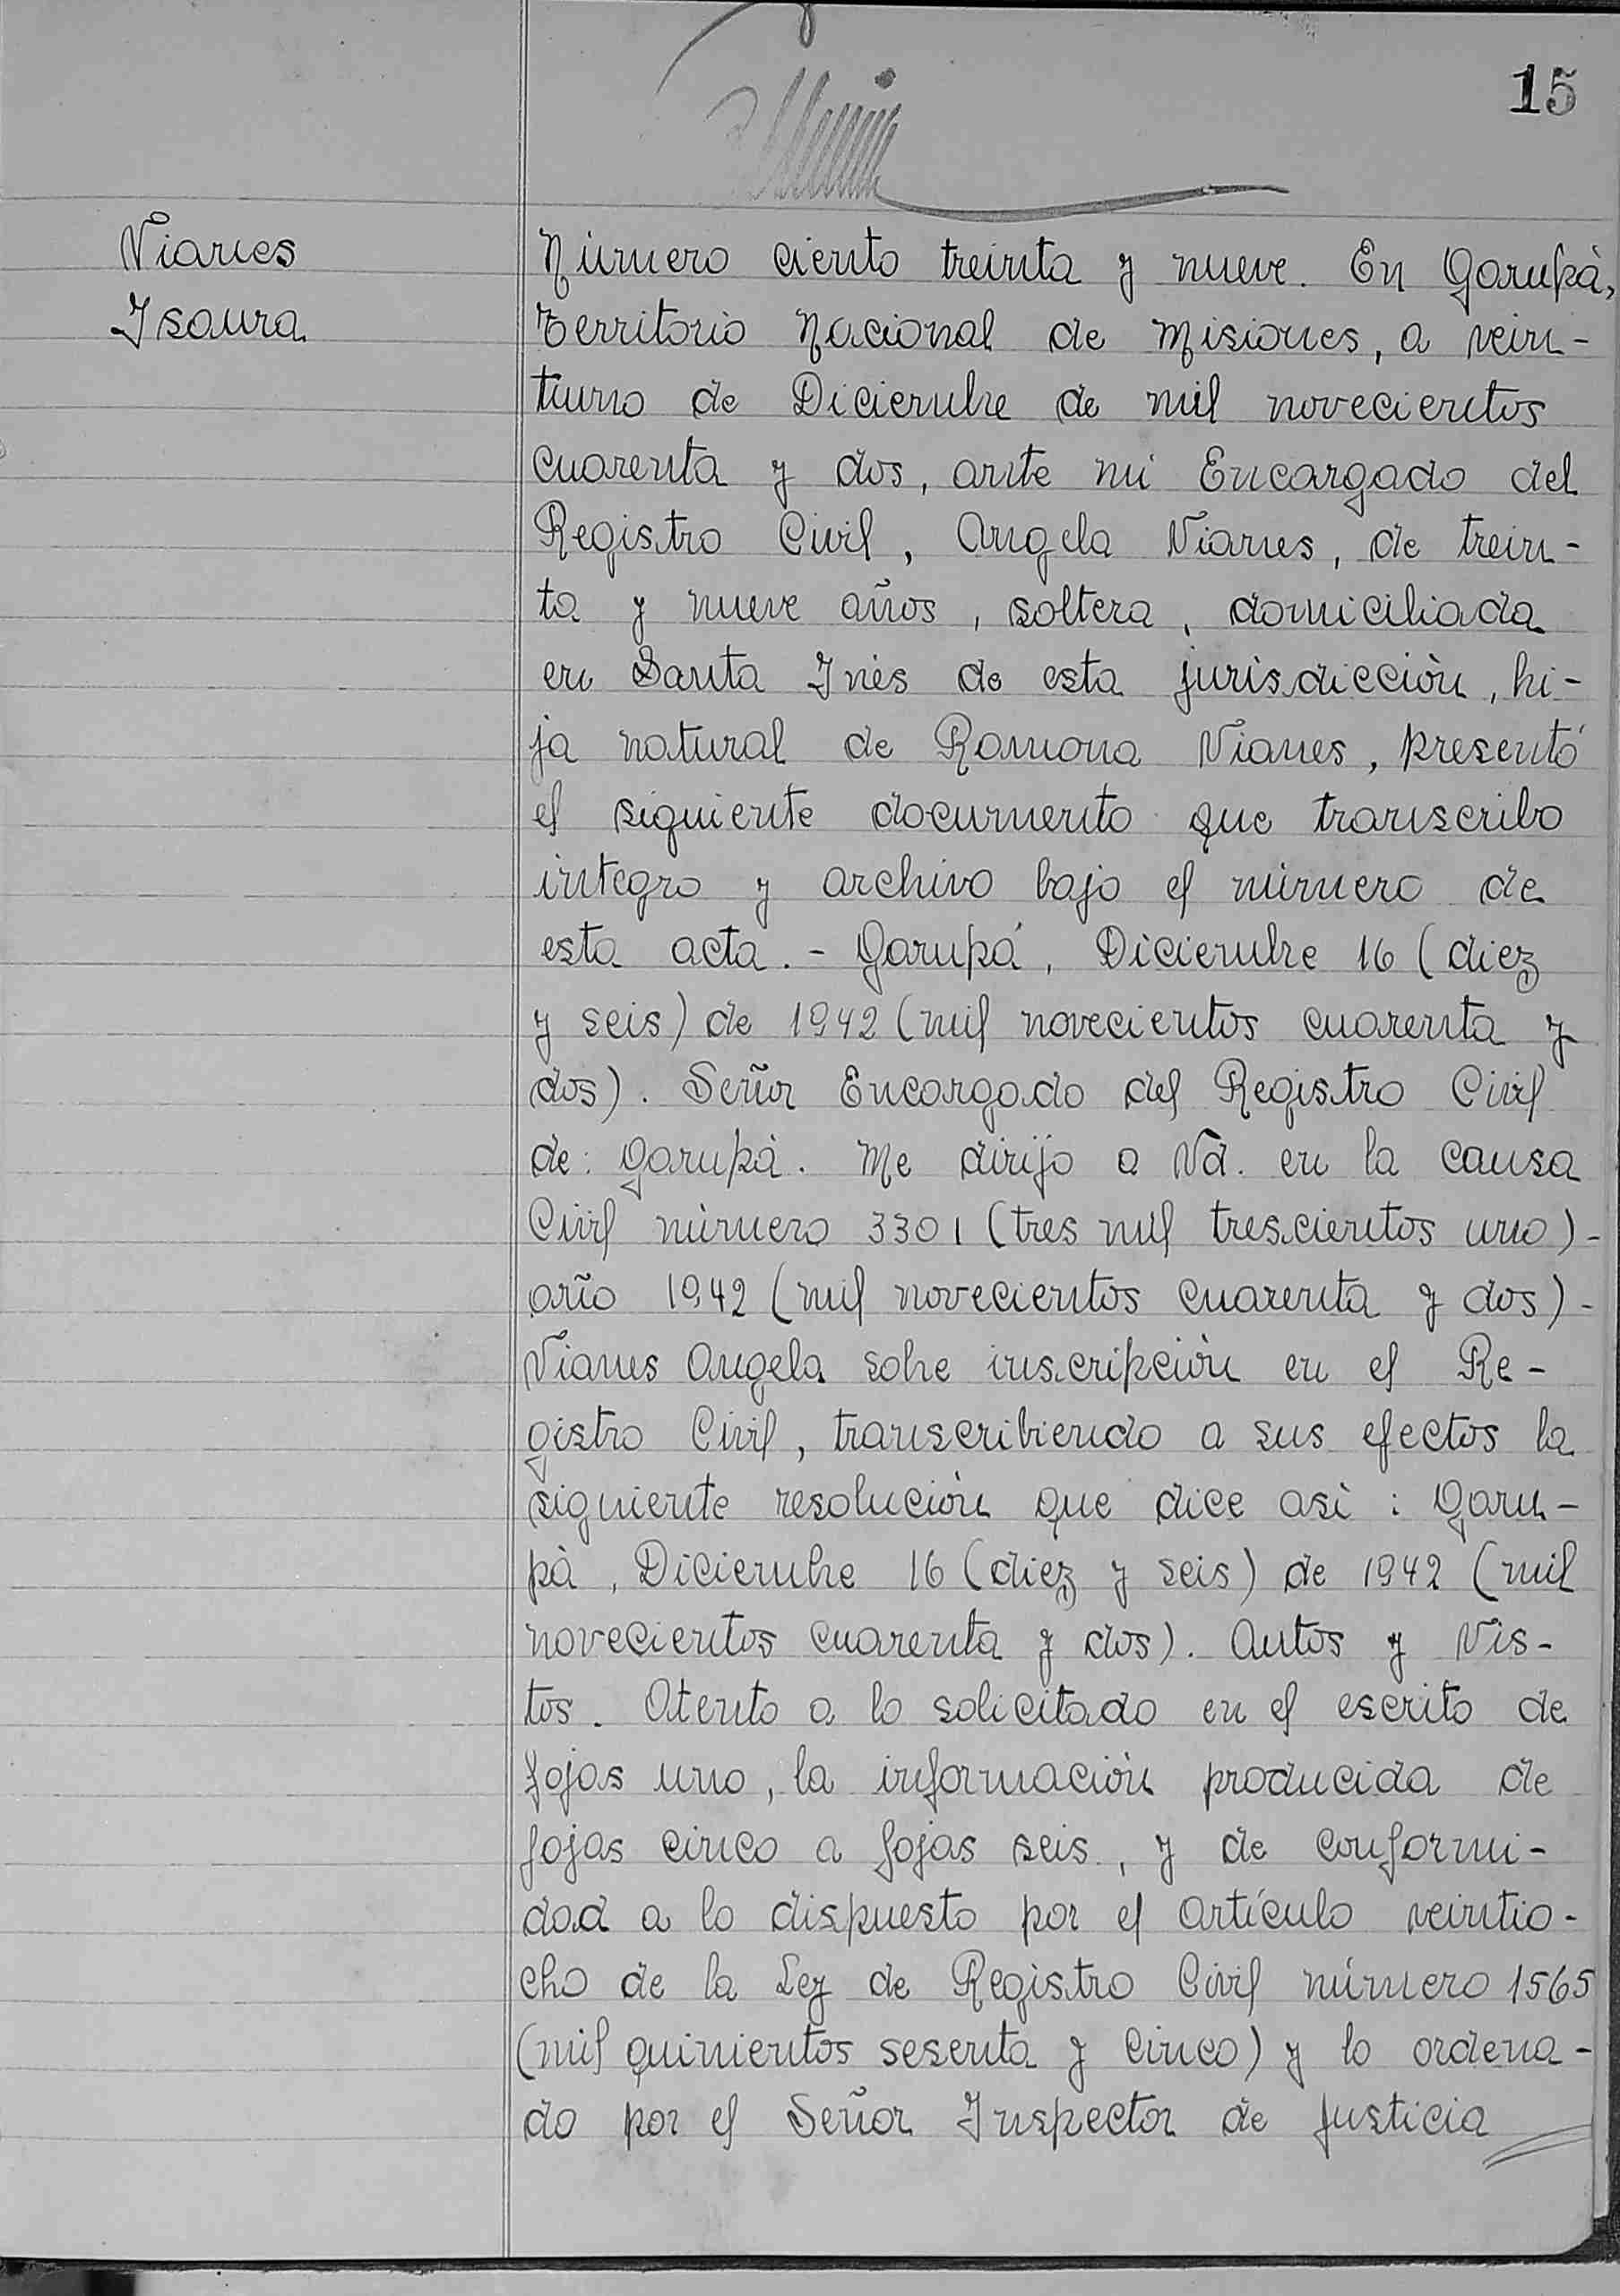 15
Vianes
Isaura
Número ciento treinta y nueve. En Garupà,
Territorio Nacional de Misiones, a vein-
tiuno de Diciembre de mil novecientos
cuarenta y dos, ante mi Encargado del
Registro Civil, Angela Vianes, de trein-
ta y nueve años, soltera, domiciliada
en Santa Inés de esta jurisdicciòn, hi-
ja natural de Ramona Vianes, presentó
el siguiente documento que transcribo
integro y archivo bajo el número de
esta acta. - Garupá, Diciembre 16 (diez
y seis) de 1942 (mil novecientos cuarenta y
dos). Señor Encargado del Registro Civil
de: Garupà. Me dirijo a Vd. en la causa
Civil número 3301 (tres mil trescientos uno) -
año 1942 (mil novecientos cuarenta y dos) -
Vianes Angela sobre inscripciòn en el Re-
gistro Civil, transcribiendo a sus efectos la
siguiente resoluciòn que dice asì : Garu-
pà, Diciembre 16 (diez y seis) de 1942 (mil
novecientos cuarenta y dos). Autos y Vis-
tos. Atento a lo solicitado en el escrito de
fojas uno, la informaciòn producida de
fojas cinco a fojas seis, y de conformi-
dad a lo dispuesto por el artículo veintio-
cho de la Ley de Registro Civil número 1565
(mil quinientos sesenta y cinco) y lo ordena-
do por el Señor Inspector de Justicia